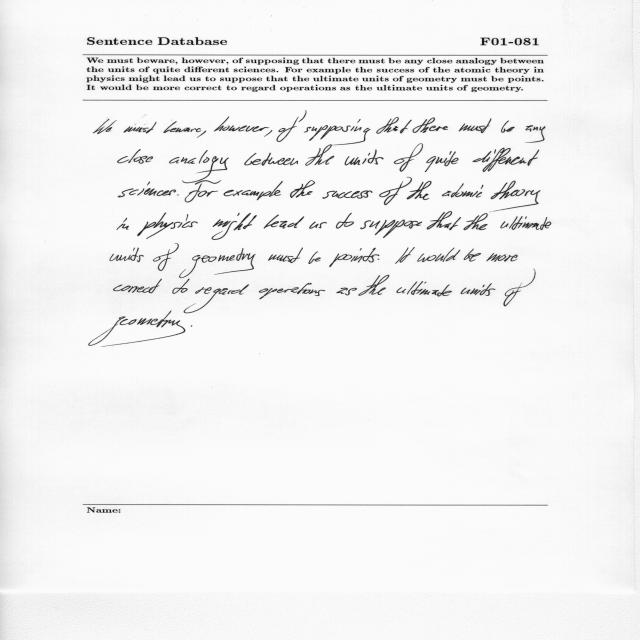 Sentence Database F01-081
We must beware, however, of supposing that there must be any close analogy between
the units of quite different sciences. For example the success of the atomic theory in
physics might lead us to suppose that the ultimate units of geometry must be points.
It would be more correct to regard operations as the ultimate units of geometry.
We must beware, however, of supposing that there must be any
close analogy between the units of quite different
sciences. For example the success of the atomic theory
in physics might lead us to suppose that the ultimate
units of geometry must be points. It would be more
correct to regard operations as the ultimate units of
geometry.
Name: